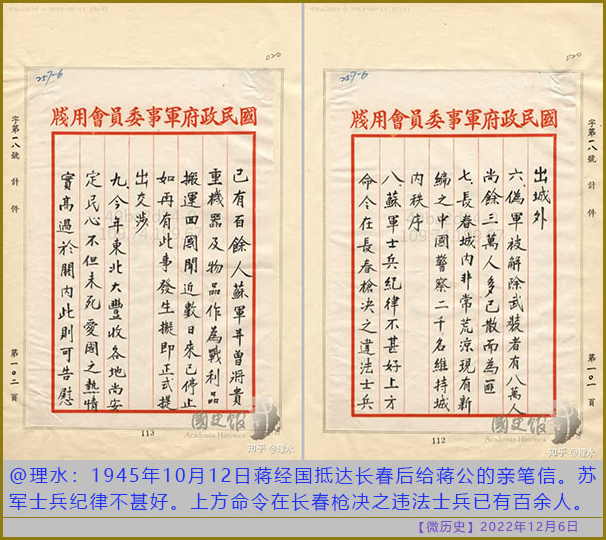 020
257-6
國民政府軍事委員會用牋
出城外
六、偽軍被解除武裝者有八萬人
尚餘三萬人多已散而為匪
七、長春城內非常荒涼現有新
編之中國警察二千名維持城
內秩序
八、蘇軍士兵紀律不甚好上方
命令在長春槍決之違法士兵
字第一八號 計 件
第一〇二頁
國史館
Academia Historica
知乎 @理水
112
020
257-6
國民政府軍事委員會用牋
已有百餘人蘇軍並曾將貴
重機器及物品作為戰利品
搬運回國聞近數日來已停止
如再有此事發生擬即正式提
出交涉
九、今年東北大豐收各地尚安
定民心不但未死愛國之熱情
實高過於關內此則可告慰
字第一八號 計 件
第一〇二頁
國史館
Academia Historica
知乎 @理水
113
@理水：1945年10月12日蒋经国抵达长春后给蒋公的亲笔信。苏
军士兵纪律不甚好。上方命令在长春枪决之违法士兵已有百余人。
【微历史】2022年12月6日